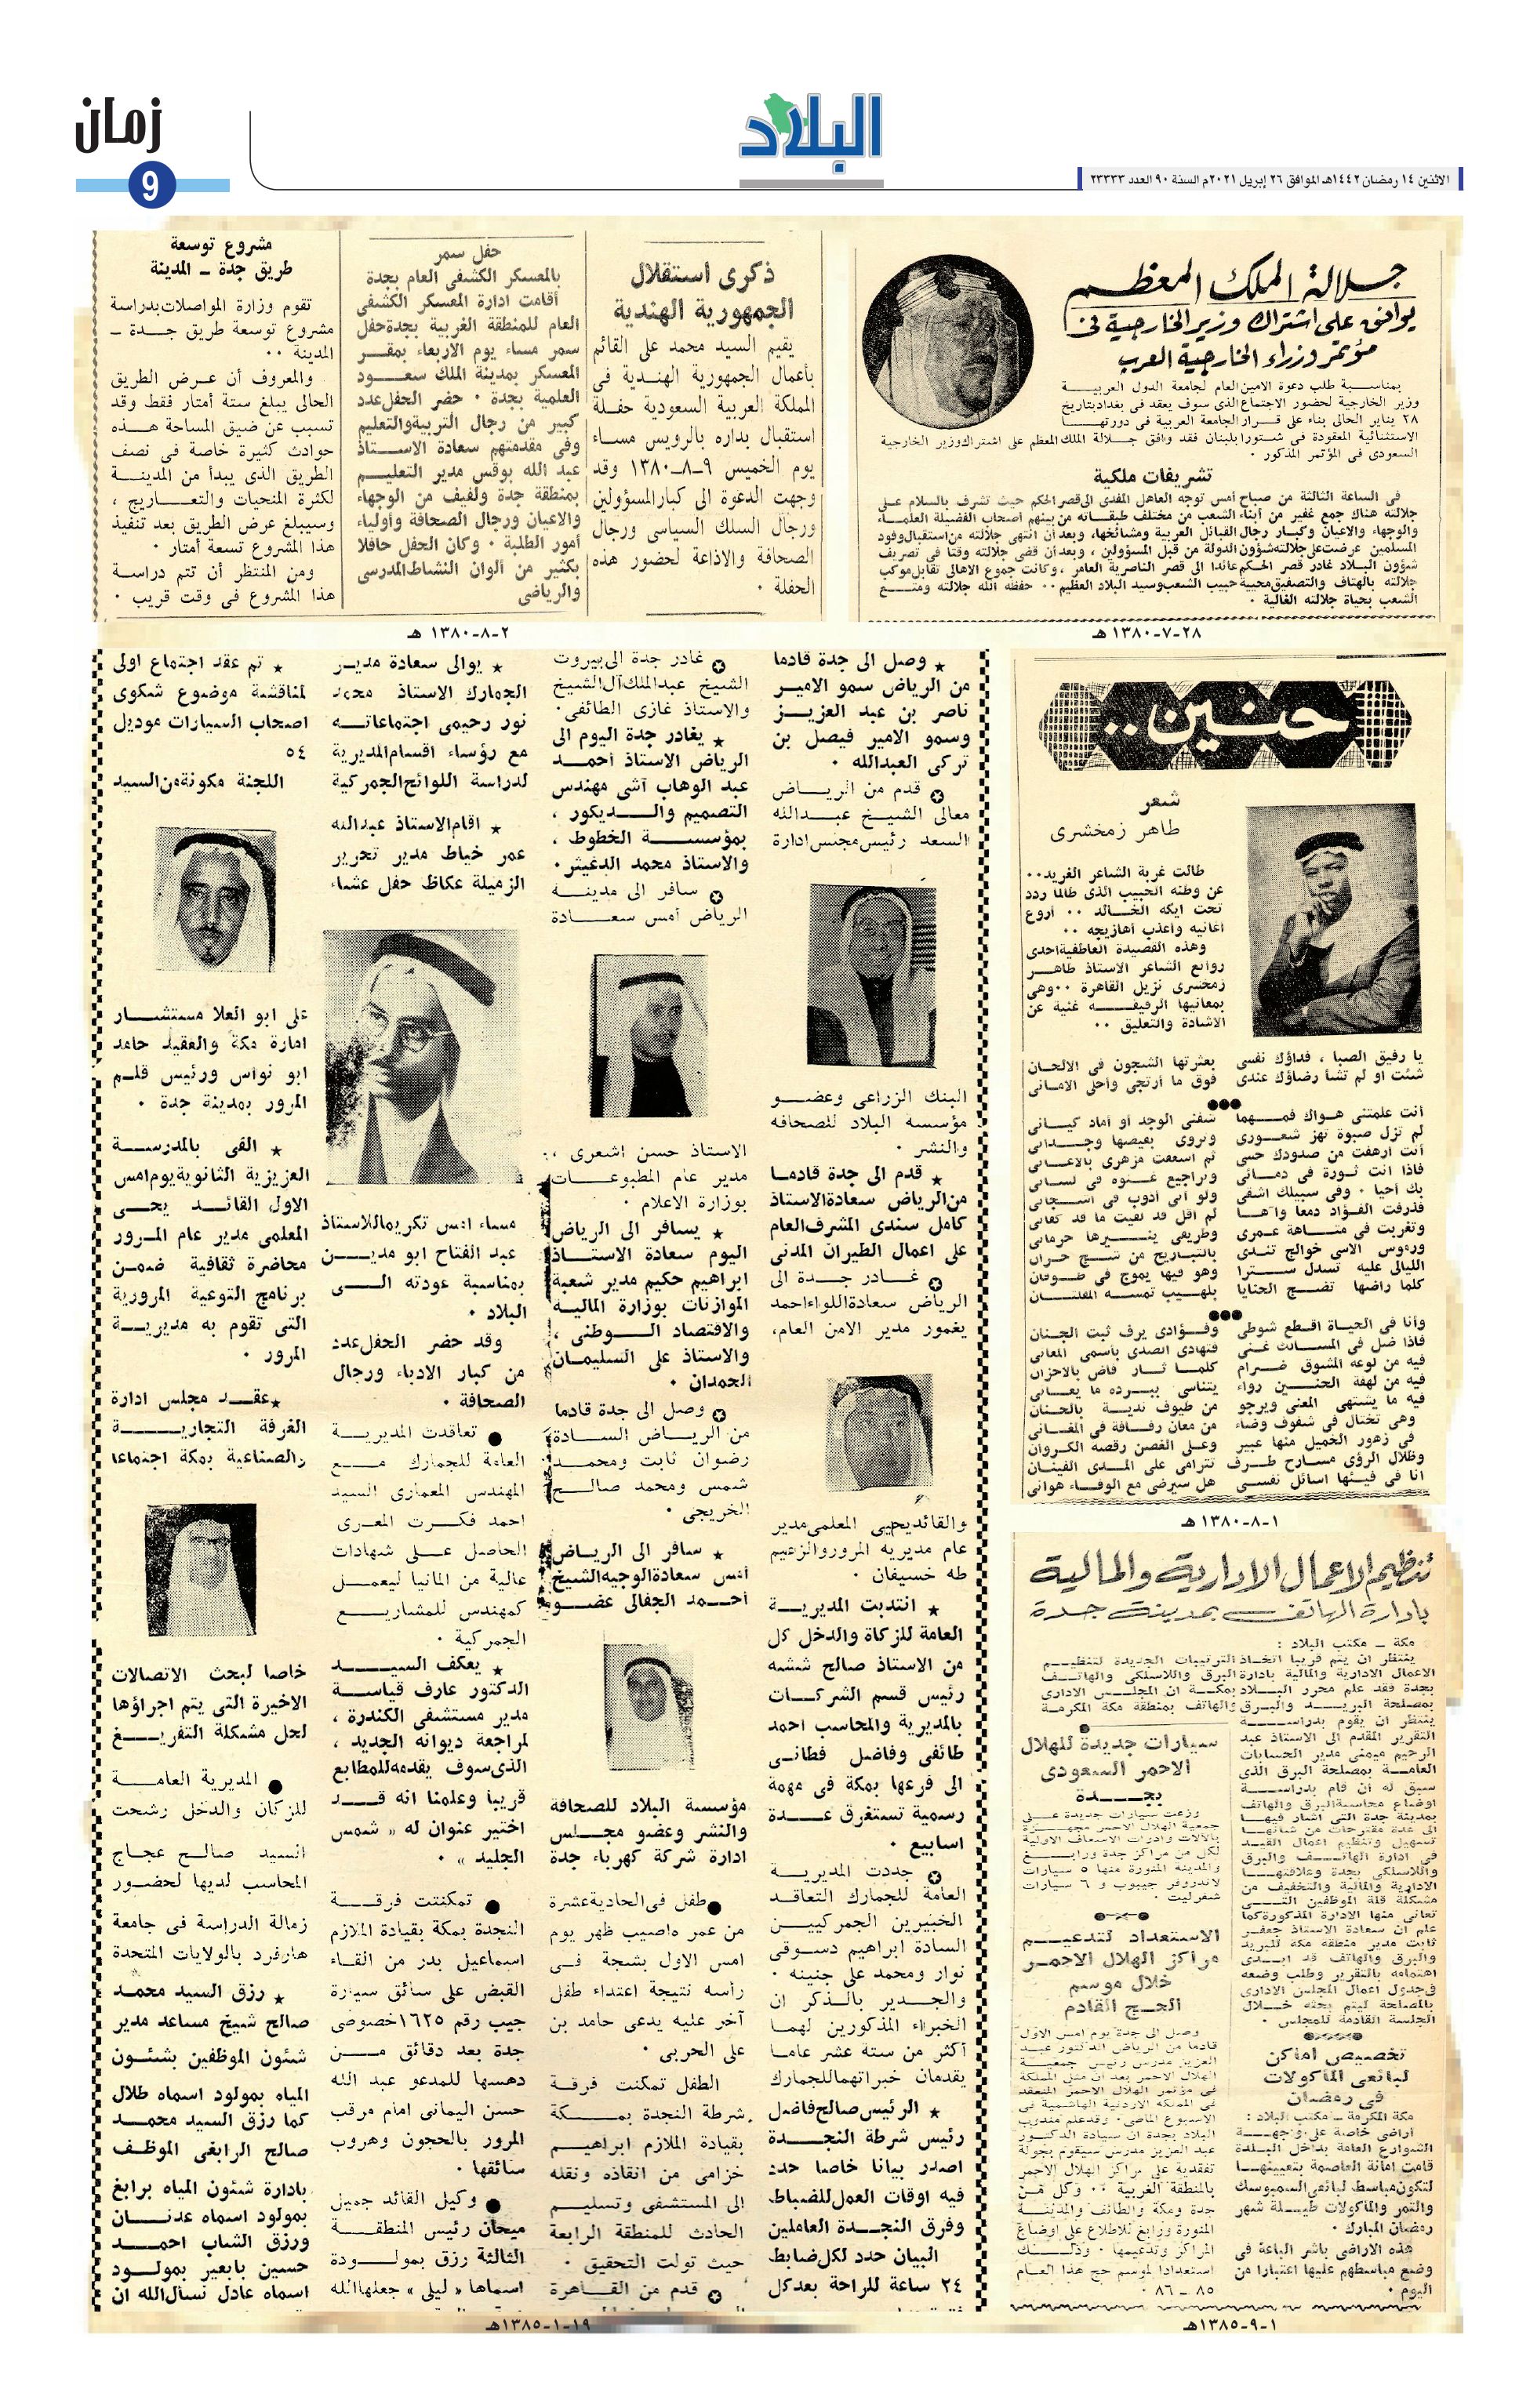 زمان
9
البلاد
الاثنين ١٤ رمضان ١٤٤٢هـ الموافق ٢٦ إبريل ٢٠٢١م السنة ٩٠ العدد ٢٣٣٣٣
جلالة الملك المعظم
يوافق على اشتراك وزير الخارجية في
مؤتمر وزراء الخارجية العرب
بمناسبة طلب دعوة الامين العام لجامعة الدول العربية
وزير الخارجية لحضور الاجتماع الذى سوف يعقد فى بغداد بتاريخ
٢٨ يناير الحالى بناء على قرار الجامعة العربية فى دورتها
الاستثنائية المعقودة فى شتورا بلبنان فقد وافق جلالة الملك المعظم على اشتراك وزير الخارجية
السعودى فى المؤتمر المذكور ٠
تشريفات ملكية
فى الساعة الثالثة من صباح أمس توجه العاهل المفدى الى قصر الحكم حيث تشرف بالسلام على
جلالته هناك جمع غفير من أبناء الشعب من مختلف طبقاته من بينهم اصحاب الفضيلة العلماء
والوجهاء والاعيان وكبار رجال القبائل العربية ومشائخها، وبعد أن انتهى جلالته من استقبال وفود
المسلمين عرضت على جلالته شؤون الدولة من قبل المسؤولين ، وبعد أن قضى جلالته وقتا فى تصريف
شؤون البلاد غادر قصر الحكم عائدا الى قصر الناصرية العامر ، وكانت جموع الاهالى تقابل موكب
جلالته بالهتاف والتصفيق محيية حبيب الشعب وسيد البلاد العظيم ٠٠ حفظه الله جلالته ومتع
الشعب بحياة جلالته الغالية ٠
٢٨-٧-١٣٨٠ هـ
ذكرى استقلال
الجمهورية الهندية
يقيم السيد محمد على القائم
بأعمال الجمهورية الهندية فى
المملكة العربية السعودية حفلة
استقبال بداره بالرويس مساء
يوم الخميس ٩-٨-١٣٨٠ وقد
وجهت الدعوة الى كبار المسؤولين
ورجال السلك السياسى ورجال
الصحافة والاذاعة لحضور هذه
الحفلة ٠
حفل سمر
بالمعسكر الكشفى العام بجدة
أقامت ادارة المعسكر الكشفى
العام للمنطقة الغربية بجدة حفل
سمر مساء يوم الاربعاء بمقر
المعسكر بمدينة الملك سعود
العلمية بجدة ٠ حضر الحفل عدد
كبير من رجال التربية والتعليم
وفى مقدمتهم سعادة الاستاذ
عبد الله بوقس مدير التعليم
بمنطقة جدة ولفيف من الوجهاء
والاعيان ورجال الصحافة وأولياء
أمور الطلبة ٠ وكان الحفل حافلا
بكثير من ألوان النشاط المدرسى
والرياضى
مشروع توسعة
طريق جدة - المدينة
تقوم وزارة المواصلات بدراسة
مشروع توسعة طريق جدة -
المدينة ٠٠
والمعروف أن عرض الطريق
الحالى يبلغ ستة أمتار فقط وقد
تسبب عن ضيق المساحة هذه
حوادث كثيرة خاصة فى نصف
الطريق الذى يبدأ من المدينة
لكثرة المنحيات والتعاريج ،
وسيبلغ عرض الطريق بعد تنفيذ
هذا المشروع تسعة أمتار ٠
ومن المنتظر أن تتم دراسة
هذا المشروع فى وقت قريب ٠
٢-٨-١٣٨٠ هـ
حنين..
شعر
طاهر زمخشرى
طالت غربة الشاعر الغريد٠٠
عن وطنه الحبيب الذى طالما ردد
تحت ايكه الخالد ٠٠ أروع
أغانيه وأعذب أهازيجه ٠٠
وهذه القصيدة العاطفية احدى
روائع الشاعر الاستاذ طاهر
زمخشرى نزيل القاهرة ٠٠ وهى
بمعانيها الرفيقه غنية عن
الاشادة والتعليق ٠٠
يا رفيق الصبا ، فداؤك نفسى بعثرتها الشجون فى الالحان
شئت أو لم تشأ رضاؤك عندى فوق ما أرتجى وأحلى الامانى
أنت علمتنى هواك فمهما شفنى الوجد أو أماد كيانى
لم تزل صبوة تهز شعورى وتروى بفيضها وجدانى
أنت أرهفت من صدودك حسى ثم اسعفت مزهرى بالاغانى
فاذا انت ثورة فى دمائى وتراجيع غنوه فى لسانى
بك أحيا ٠ وفى سبيلك اشقى ولو أنى أذوب فى اشجانى
فذرفت الفؤاد دمعا وآها لم أقل قد لقيت ما قد كفانى
وتغربت فى متاهة عمرى وطريقى ينيرها حرمانى
ورءوس الاسى خوالج تندى بالتباريح من شج حران
الليالى عليه تسدل سترا وهو فيها يموج فى طوفان
كلما راضها تضج الحنايا بلهيب تمسه المقلتان
وأنا فى الحياة اقطع شوطى وفؤادى يرف ثبت الجنان
فاذا ضل فى المسالك غنى فتهادى الصدى باسمى المعانى
فيه من لوعه المشوق ضرام كلما ثار فاض بالاحزان
فيه من لهفة الحنين رواء يتناسى ببرده ما يعانى
فيه ما يشتهى المعنى ويرجو من طيوف ندية بالحنان
وهى تختال فى شفوف وضاء من معان رفافة فى المغانى
فى زهور الخميل منها عبير وعلى الغصن رقصه الكروان
وظلال الرؤى مسارح طرف تترامى على المدى الفينان
أنا فى فيئها اسائل نفسى هل سيرضى مع الوفاء هوانى
١-٨-١٣٨٠ هـ
تنظيم الاعمال الادارية والمالية
بادارة الهاتف بمدينة جدة
مكة - مكتب البلاد :
ينتظر ان يتم قريبا اتخاذ الترتيبات الجديدة لتنظيم
الاعمال الادارية والمالية بادارة البرق واللاسلكى والهاتف
بجدة فقد علم محرر البلاد بمكة ان المجلس الادارى
بمصلحة البريد والبرق والهاتف بمنطقة مكة المكرمة
ينتظر ان يقوم بدراسة
التقرير المقدم الى الاستاذ عبد
الرحيم ميمنى مدير الحسابات
العامة بمصلحة البرق الذى
سبق له أن قام بدراسة
اوضاع محاسبة البرق والهاتف
بمدينة جدة التى اشار فيها
الى عدة مقترحات من شأنها
تسهيل وتنظيم اعمال القيد
فى ادارة الهاتف والبرق
واللاسلكى بجدة وعلاقتها
الادارية والمالية والتخفيف من
مشكلة قلة الموظفين التى
تعانى منها الادارة المذكورة كما
علم ان سعادة الاستاذ جعفر
ثابت مدير منطقة مكة للبريد
والبرق والهاتف قد ابدى
اهتمامه بالتقرير وطلب وضعه
فى جدول اعمال المجلس الادارى
بالمصلحة ليتم بحثه خلال
الجلسة القادمة للمجلس ٠
تخصيص اماكن
لبائعى المأكولات
فى رمضان
مكة المكرمة - مكتب البلاد :
أراضى خاصة على واجهة
الشوارع العامة بداخل البلدة
قامت امانة العاصمة بتعيينها
لتكون مباسط لبائعى السمبوسك
والتمر والمأكولات طيلة شهر
رمضان المبارك ٠
هذه الاراضى باشر الباعة فى
وضع مباسطهم عليها اعتبارا من
اليوم ٠
سيارات جديدة للهلال
الاحمر السعودى
بجدة
وزعت سيارات جديدة على
جمعية الهلال الاحمر مجهزة
بالآلات وادوات الاسعاف الاولية
لكل من مراكز جدة ورابغ
والمدينة المنورة منها ٥ سيارات
لاندروفر جيبوب و ٦ سيارات
شفرليت ٠
الاستعداد لتدعيم
مراكز الهلال الاحمر
خلال موسم
الحج القادم
وصل الى جدة يوم امس الاول
قادما من الرياض الدكتور عبد
العزيز مدرس رئيس جمعية
الهلال الاحمر بعد ان مثل المملكة
فى مؤتمر الهلال الاحمر المنعقد
فى المملكة الاردنية الهاشمية فى
الاسبوع الماضى ٠ وقد علم مندوب
البلاد بجدة ان سيادة الدكتور
عبد العزيز مدرس سيقوم بجولة
تفقدية على مراكز الهلال الاحمر
بالمنطقة الغربية ٠٠ وكل من
جدة ومكة والطائف والمدينة
المنورة ورابغ للاطلاع على اوضاع
المراكز وتدعيمها ٠ وذلك
استعدادا لموسم حج هذا العام
٨٥ - ٨٦ ٠
١-٩-١٣٨٥هـ
★ وصل الى جدة قادما
من الرياض سمو الامير
ناصر بن عبد العزيز
وسمو الامير فيصل بن
تركى العبدالله ٠
✪ قدم من الرياض
معالى الشيخ عبدالله
السعد رئيس مجلس ادارة
البنك الزراعى وعضو
مؤسسه البلاد للصحافه
والنشر ٠
★ قدم الى جدة قادما
من الرياض سعادة الاستاذ
كامل سندى المشرف العام
على اعمال الطيران المدنى
✪ غادر جدة الى
الرياض سعادة اللواء احمد
يغمور مدير الامن العام،
والقائد يحيى المعلمى مدير
عام مديرية المرور والزعيم
طه خسيفان ٠
★ انتدبت المديرية
العامة للزكاة والدخل كل
من الاستاذ صالح ششه
رئيس قسم الشركات
بالمديرية والمحاسب احمد
طائفى وفاضل فطانى
الى فرعها بمكة فى مهمة
رسمية تستغرق عدة
اسابيع ٠
✪ جددت المديرية
العامة للجمارك التعاقد
الخبيرين الجمركيين
السادة ابراهيم دسوقى
نوار ومحمد على جنينه ٠
والجدير بالذكر ان
الخبراء المذكورين لهما
أكثر من ستة عشر عاما
يقدمان خبراتهما للجمارك
★ الرئيس صالح فاضل
رئيس شرطة النجدة
اصدر بيانا خاصا حدد
فيه اوقات العمل للضباط
وفرق النجدة العاملين
البيان حدد لكل ضابط
٢٤ ساعة للراحة بعد كل
✪ غادر جدة الى بيروت
الشيخ عبدالملك آل الشيخ
والاستاذ غازى الطائفى٠
★ يغادر جدة اليوم الى
الرياض الاستاذ أحمد
عبد الوهاب آشى مهندس
التصميم والديكور ،
بمؤسسة الخطوط ،
والاستاذ محمد الدغيثر٠
✪ سافر الى مدينة
الرياض أمس سعادة
الاستاذ حسن اشعرى ،
مدير عام المطبوعات
بوزارة الاعلام ٠
★ يسافر الى الرياض
اليوم سعادة الاستاذ
ابراهيم حكيم مدير شعبة
الموازنات بوزارة المالية
والاقتصاد الوطنى ،
والاستاذ على السليمان
الحمدان ٠
✪ وصل الى جدة قادما
من الرياض السادة
رضوان ثابت ومحمد
شمس ومحمد صالح
الخريجى ٠
★ سافر الى الرياض
أمس سعادة الوجيه الشيخ
أحمد الجفالى عضو
مؤسسة البلاد للصحافة
والنشر وعضو مجلس
ادارة شركة كهرباء جدة
● طفل فى الحادية عشرة
من عمره اصيب ظهر يوم
امس الاول بشجة فى
رأسه نتيجة اعتداء طفل
آخر عليه يدعى حامد بن
على الحربى ٠
الطفل تمكنت فرقة
شرطة النجدة بمكة
بقيادة الملازم ابراهيم
خزامى من انقاذه ونقله
الى المستشفى وتسليم
الحادث للمنطقة الرابعة
حيث تولت التحقيق ٠
✪ قدم من القاهرة
★ يوالى سعادة مدير
الجمارك الاستاذ محمد
نور رحيمى اجتماعاته
مع رؤساء اقسام المديرية
لدراسة اللوائح الجمركية
★ اقام الاستاذ عبدالله
عمر خياط مدير تحرير
الزميلة عكاظ حفل عشاء
مساء امس تكريما للاستاذ
عبد الفتاح ابو مدين
بمناسبة عودته الى
البلاد ٠
وقد حضر الحفل عدد
من كبار الادباء ورجال
الصحافة ٠
● تعاقدت المديرية
العامة للجمارك مع
المهندس المعمارى السيد
احمد فكرت المعرى
الحاصل على شهادات
عالية من المانيا ليعمل
كمهندس للمشاريع
الجمركية ٠
★ يعكف السيد
الدكتور عارف قياسة
مدير مستشفى الكندرة ،
لمراجعة ديوانه الجديد ،
الذى سوف يقدمه للمطابع
قريبا وعلمنا انه قد
اختير عنوان له « شمس
الجليد » ٠
● تمكنت فرقة
النجدة بمكة بقيادة الملازم
اسماعيل بدر من القاء
القبض على سائق سيارة
جيب رقم ١٦٢٥ خصوصى
جدة بعد دقائق من
دهسها للمدعو عبد الله
حسن اليمانى امام مرقب
المرور بالحجون وهروب
سائقها ٠
● وكيل القائد جميل
ميحان رئيس المنطقة
الثالثة رزق بمولودة
اسماها « ليلى » جعلها الله
★ تم عقد اجتماع اولى
لمناقشة موضوع شكوى
اصحاب السيارات موديل
٥٤
اللجنة مكونة من السيد
على ابو العلا مستشار
امارة مكة والعقيد حامد
ابو نواس ورئيس قلم
المرور بمدينة جدة ٠
★ القى بالمدرسة
العزيزية الثانوية يوم امس
الاول القائد يحيى
المعلمى مدير عام المرور
محاضرة ثقافية ضمن
برنامج التوعية المرورية
التى تقوم به مديرية
المرور ٠
★عقد مجلس ادارة
الغرفة التجارية
والصناعية بمكة اجتماعا
خاصا لبحث الاتصالات
الاخيرة التى يتم اجراؤها
لحل مشكلة التفريغ
● المديرية العامة
للزكاة والدخل رشحت
السيد صالح عجاج
المحاسب لديها لحضور
زمالة الدراسة فى جامعة
هارفرد بالولايات المتحدة
★ رزق السيد محمد
صالح شيخ مساعد مدير
شئون الموظفين بشئون
المياه بمولود اسماه طلال
كما رزق السيد محمد
صالح الرابغى الموظف
بادارة شئون المياه برابغ
بمولود اسماه عدنان
ورزق الشاب احمد
حسين بابعير بمولود
اسماه عادل نسأل الله ان
١٩-١-١٣٨٥هـ